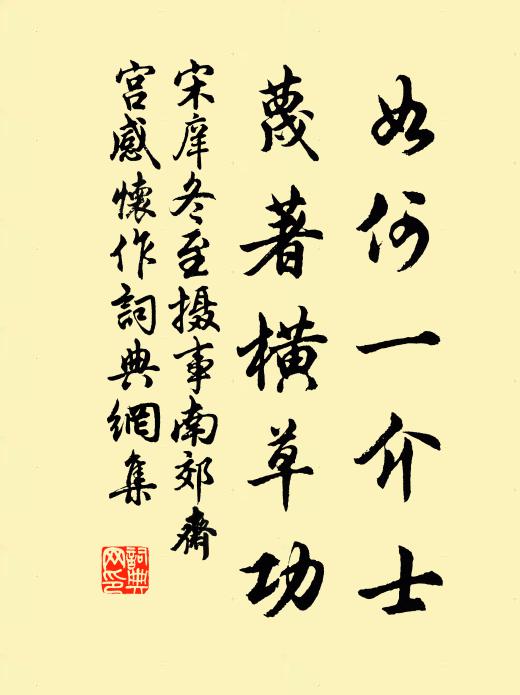 如何一介士
蔑著横草功
宋庠冬至摄事南郊斋
宫感怀作詞典網集
詞典网印